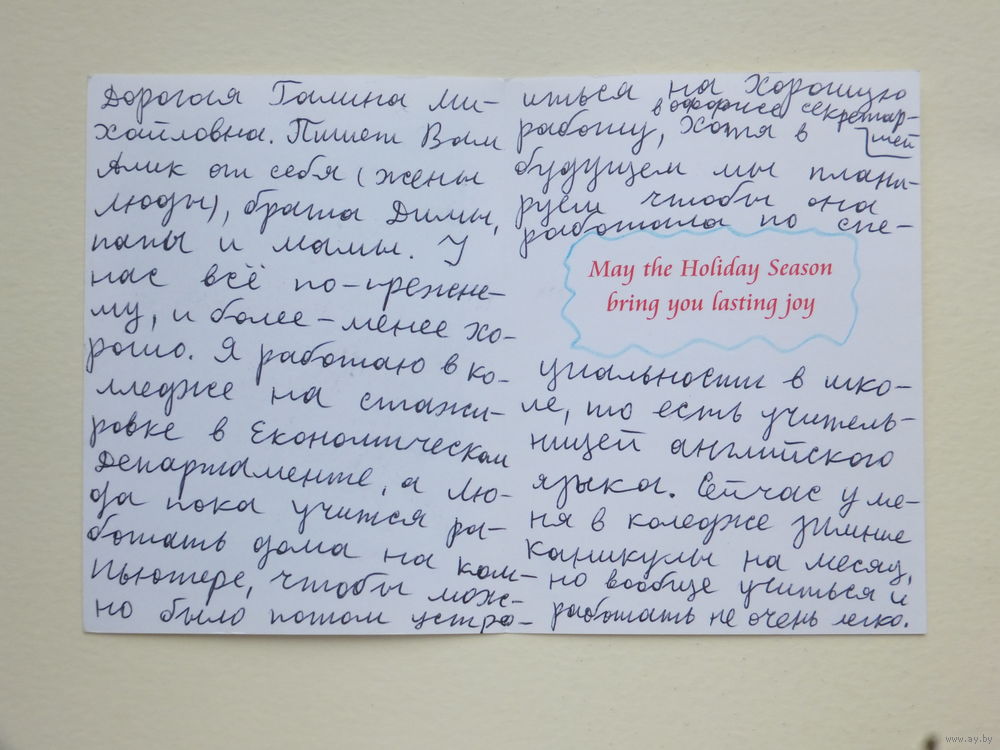 Дорогая Галина Ми-
хайловна. Пишет Вам
Алик от себя (жены
Люды), брата Димы,
папы и мамы. У
нас всё по-прежне-
му, и более-менее хо-
рошо. Я работаю в ко-
лледже на стажи-
ровке в Економическом
Департаменте, а Лю-
да пока учится ра-
ботать дома на ком-
пьютере, чтобы мож-
но было потом устро-
иться на хорошую
в офорисе секретар-
работу, хотя в шей
будущем мы плани-
руем чтобы она
работала по спе-
May the Holiday Season
bring you lasting joy
циальности в шко-
ле, то есть учитель-
ницей английского
языка. Сейчас у ме-
ня в коледже зимние
каникулы на месяц,
но вообще учиться и
работать не очень легко.
www.ay.by